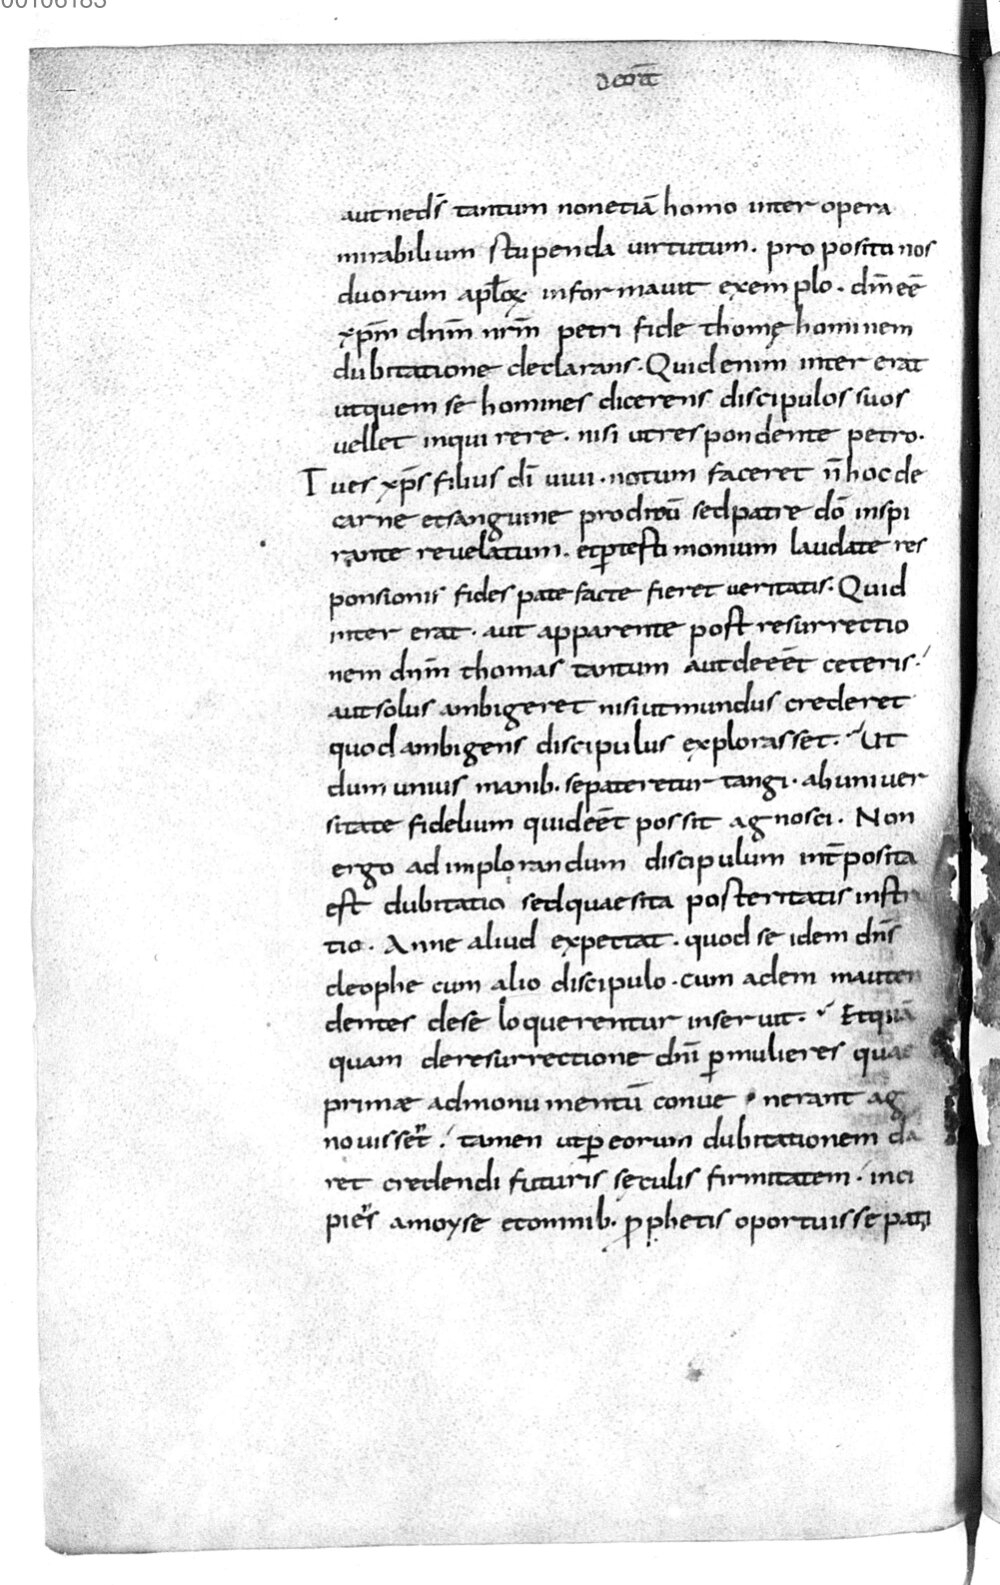 00106183
aut ne ds̄ tantum non etiā homo inter opera
mirabilium stupenda uirtutum. propositi nos
duorum apl̄oꝝ. informauit exemplo. dm̄ eē
xp̄m dnm̄ nrm̄ petri fide thomę hominem
dubitatione declarans. Quid enim inter erat
ut quem se homines dicerens discipulos suos
uellet inquirere. nisi ut respondente petro.
Tu es xp̄s filius dī uiui. notum faceret n̄ hoc de
carne et sanguine proditū sed patre dō inspi
rante reuelatum. et ꝑ testimonium laudate res
ponsionis fides patefacte fieret ueritatis. Quid
inter erat. aut apparente post resurrectio
nem dnm̄ thomas tantum aut deeēt ceteris.
aut solus ambigeret nisi ut mundus crederet
quod ambigens discipulus explorasset. Ut
dum unius manib. se pateretur tangi. ab uniuer
sitate fidelium quid eēt possit agnosci. Non
ergo ad implorandum discipulum int̄posita
est dubitatio sed quaesita posteritatis
tio. Anne aliud expectat. quod se idem dn̄s
cleophe cum alio discipulo. cum adem
dentes de se loquerentur inseruit. Et quā
quam de resurrectione dnī ꝑ mulieres quae
primæ ad monumentū conue nerant ag
nouisset. tamen ut ꝑ eorum dubitationem da
ret credendi futuris sęculis firmitatem. inci
piēs a moyse et omnib. ꝓphetis oportuisse pati